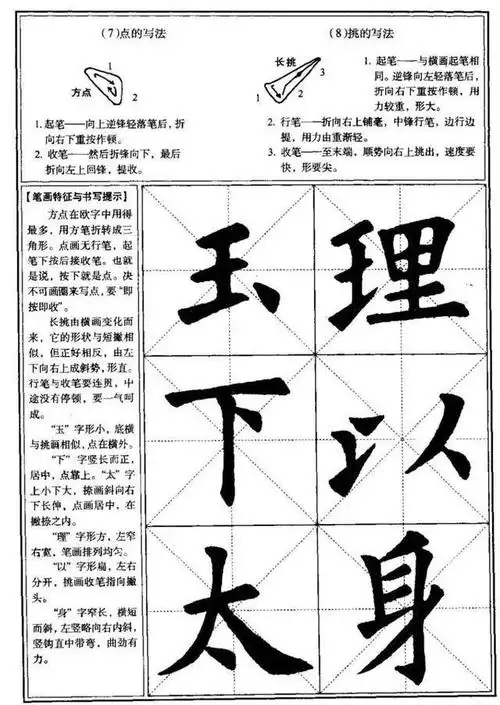 (7)点的写法
方点
1
2
1. 起笔——向上逆锋轻落笔后，折
向右下重按作顿。
2. 收笔——然后折锋向下，最后
折向左上回锋，提收。
(8)挑的写法
长挑
1
2
3
1. 起笔——与横画起笔相
同。逆锋向左轻落笔后，
折向右下重按作顿，用
力较重，形大。
2. 行笔——折向右上铺毫，中锋行笔，边行边
提，用力由重渐轻。
3. 收笔——至末端，顺势向右上挑出，速度要
快，形要尖。
【笔画特征与书写提示】
方点在欧字中用得
最多，用方笔折转成三
角形。点画无行笔，起
笔下按后接收笔。也就
是说，按下就是点。决
不可画圈来写点，要“即
按即收”。
长挑由横画变化而
来，它的形状与短撇相
似，但正好相反，由左
下向右上成斜势，形直。
行笔与收笔要连贯，中
途没有停顿，要一气呵
成。
“玉”字形小，底横
与挑画相似，点在横外。
“下”字竖长而正，
居中，点靠上。“太”字
上小下大，捺画斜向右
下长伸，点画居中，在
撇捺之内。
“理”字形方，左窄
右宽，笔画排列均匀。
“以”字形扁，左右
分开，挑画收笔指向撇
头。
“身”字窄长，横短
而斜，左竖略向右内斜，
竖钩直中带弯，曲劲有
力。
玉 理
下 以
太 身